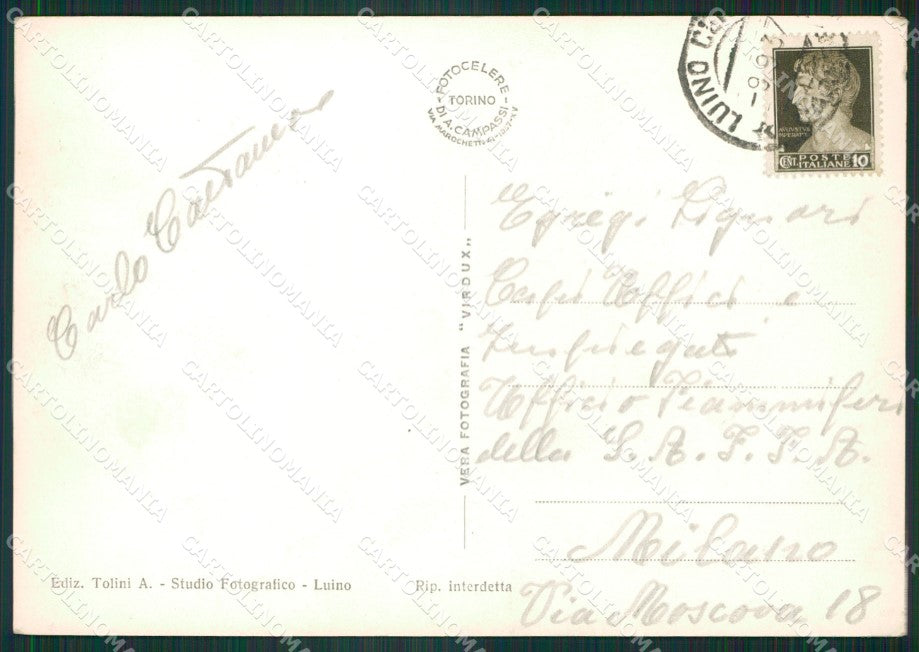 FOTOCELERE
TORINO
DI A. CAMPASSI
Carlo Cattaneo
LUINO
AVGVSTVS
IMPERATOR
CENT. POSTE ITALIANE 10
VERA FOTOGRAFIA "VIRDUX"
Egregi Signori
Capi Uffici e
Impiegati
Ufficio Fiammiferi
della S. A. F. F. A.
Milano
Via Moscova, 18
Ediz. Tolini A. - Studio Fotografico - Luino
Rip. interdetta
CARTOLINOMANIA